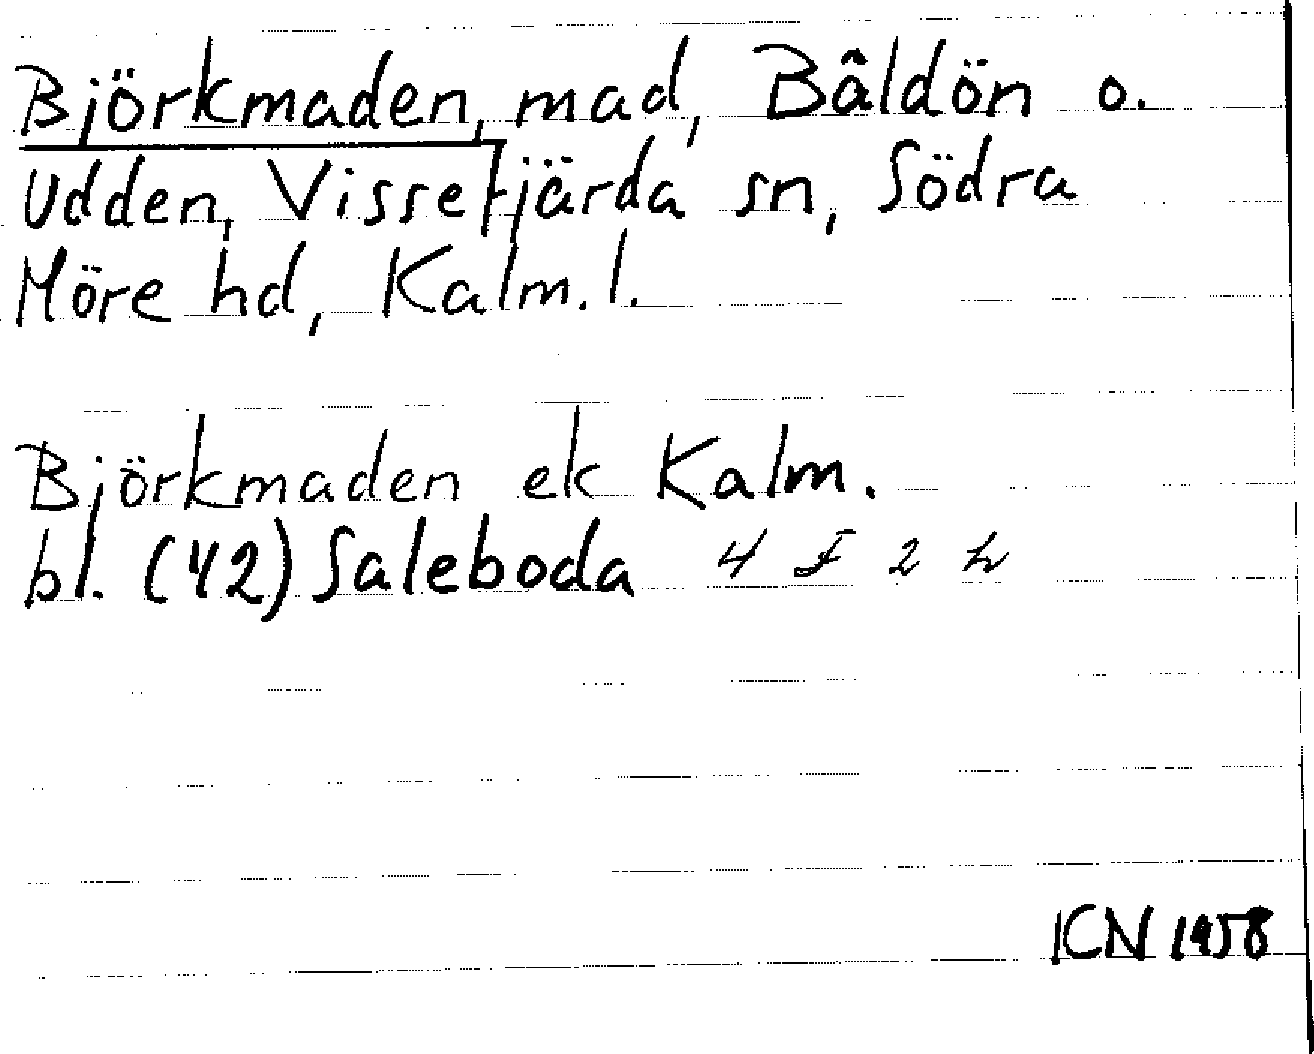 Björkmaden, mad, Båldön o.
Udden, Vissefjärda sn, Södra
Möre hd, Kalm. l.
Björkmaden ek Kalm.
bl. (42) Saleboda 4 F 2 h
KN 1958